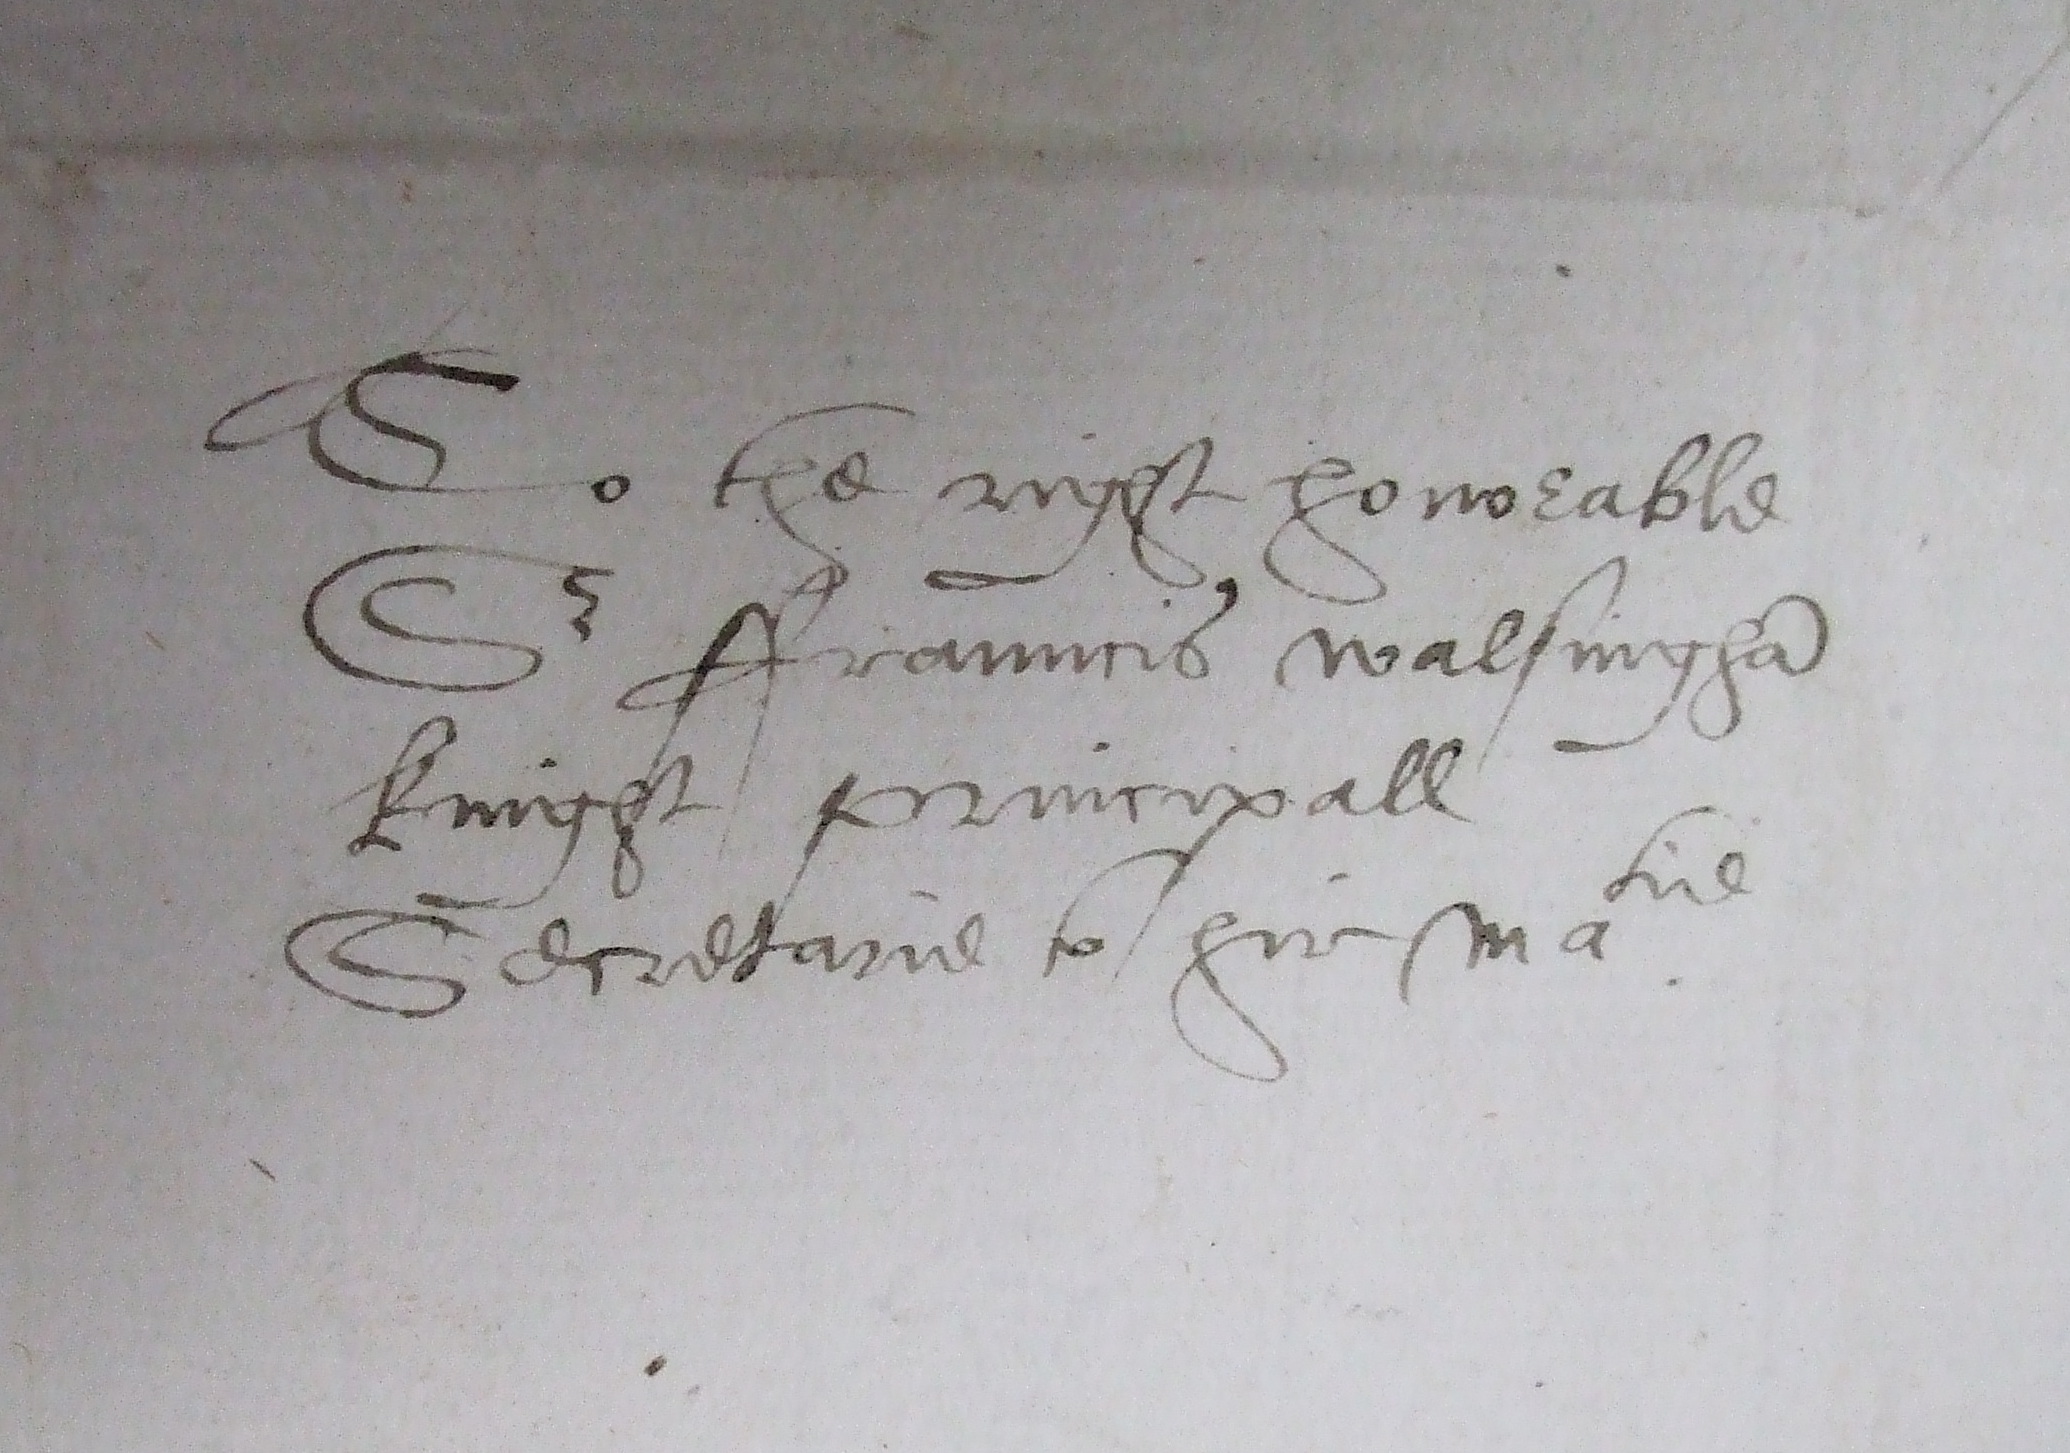 To the right honorable
Sr ffrauncis walsinghā
knight principall
Secretarie to hir Matie.